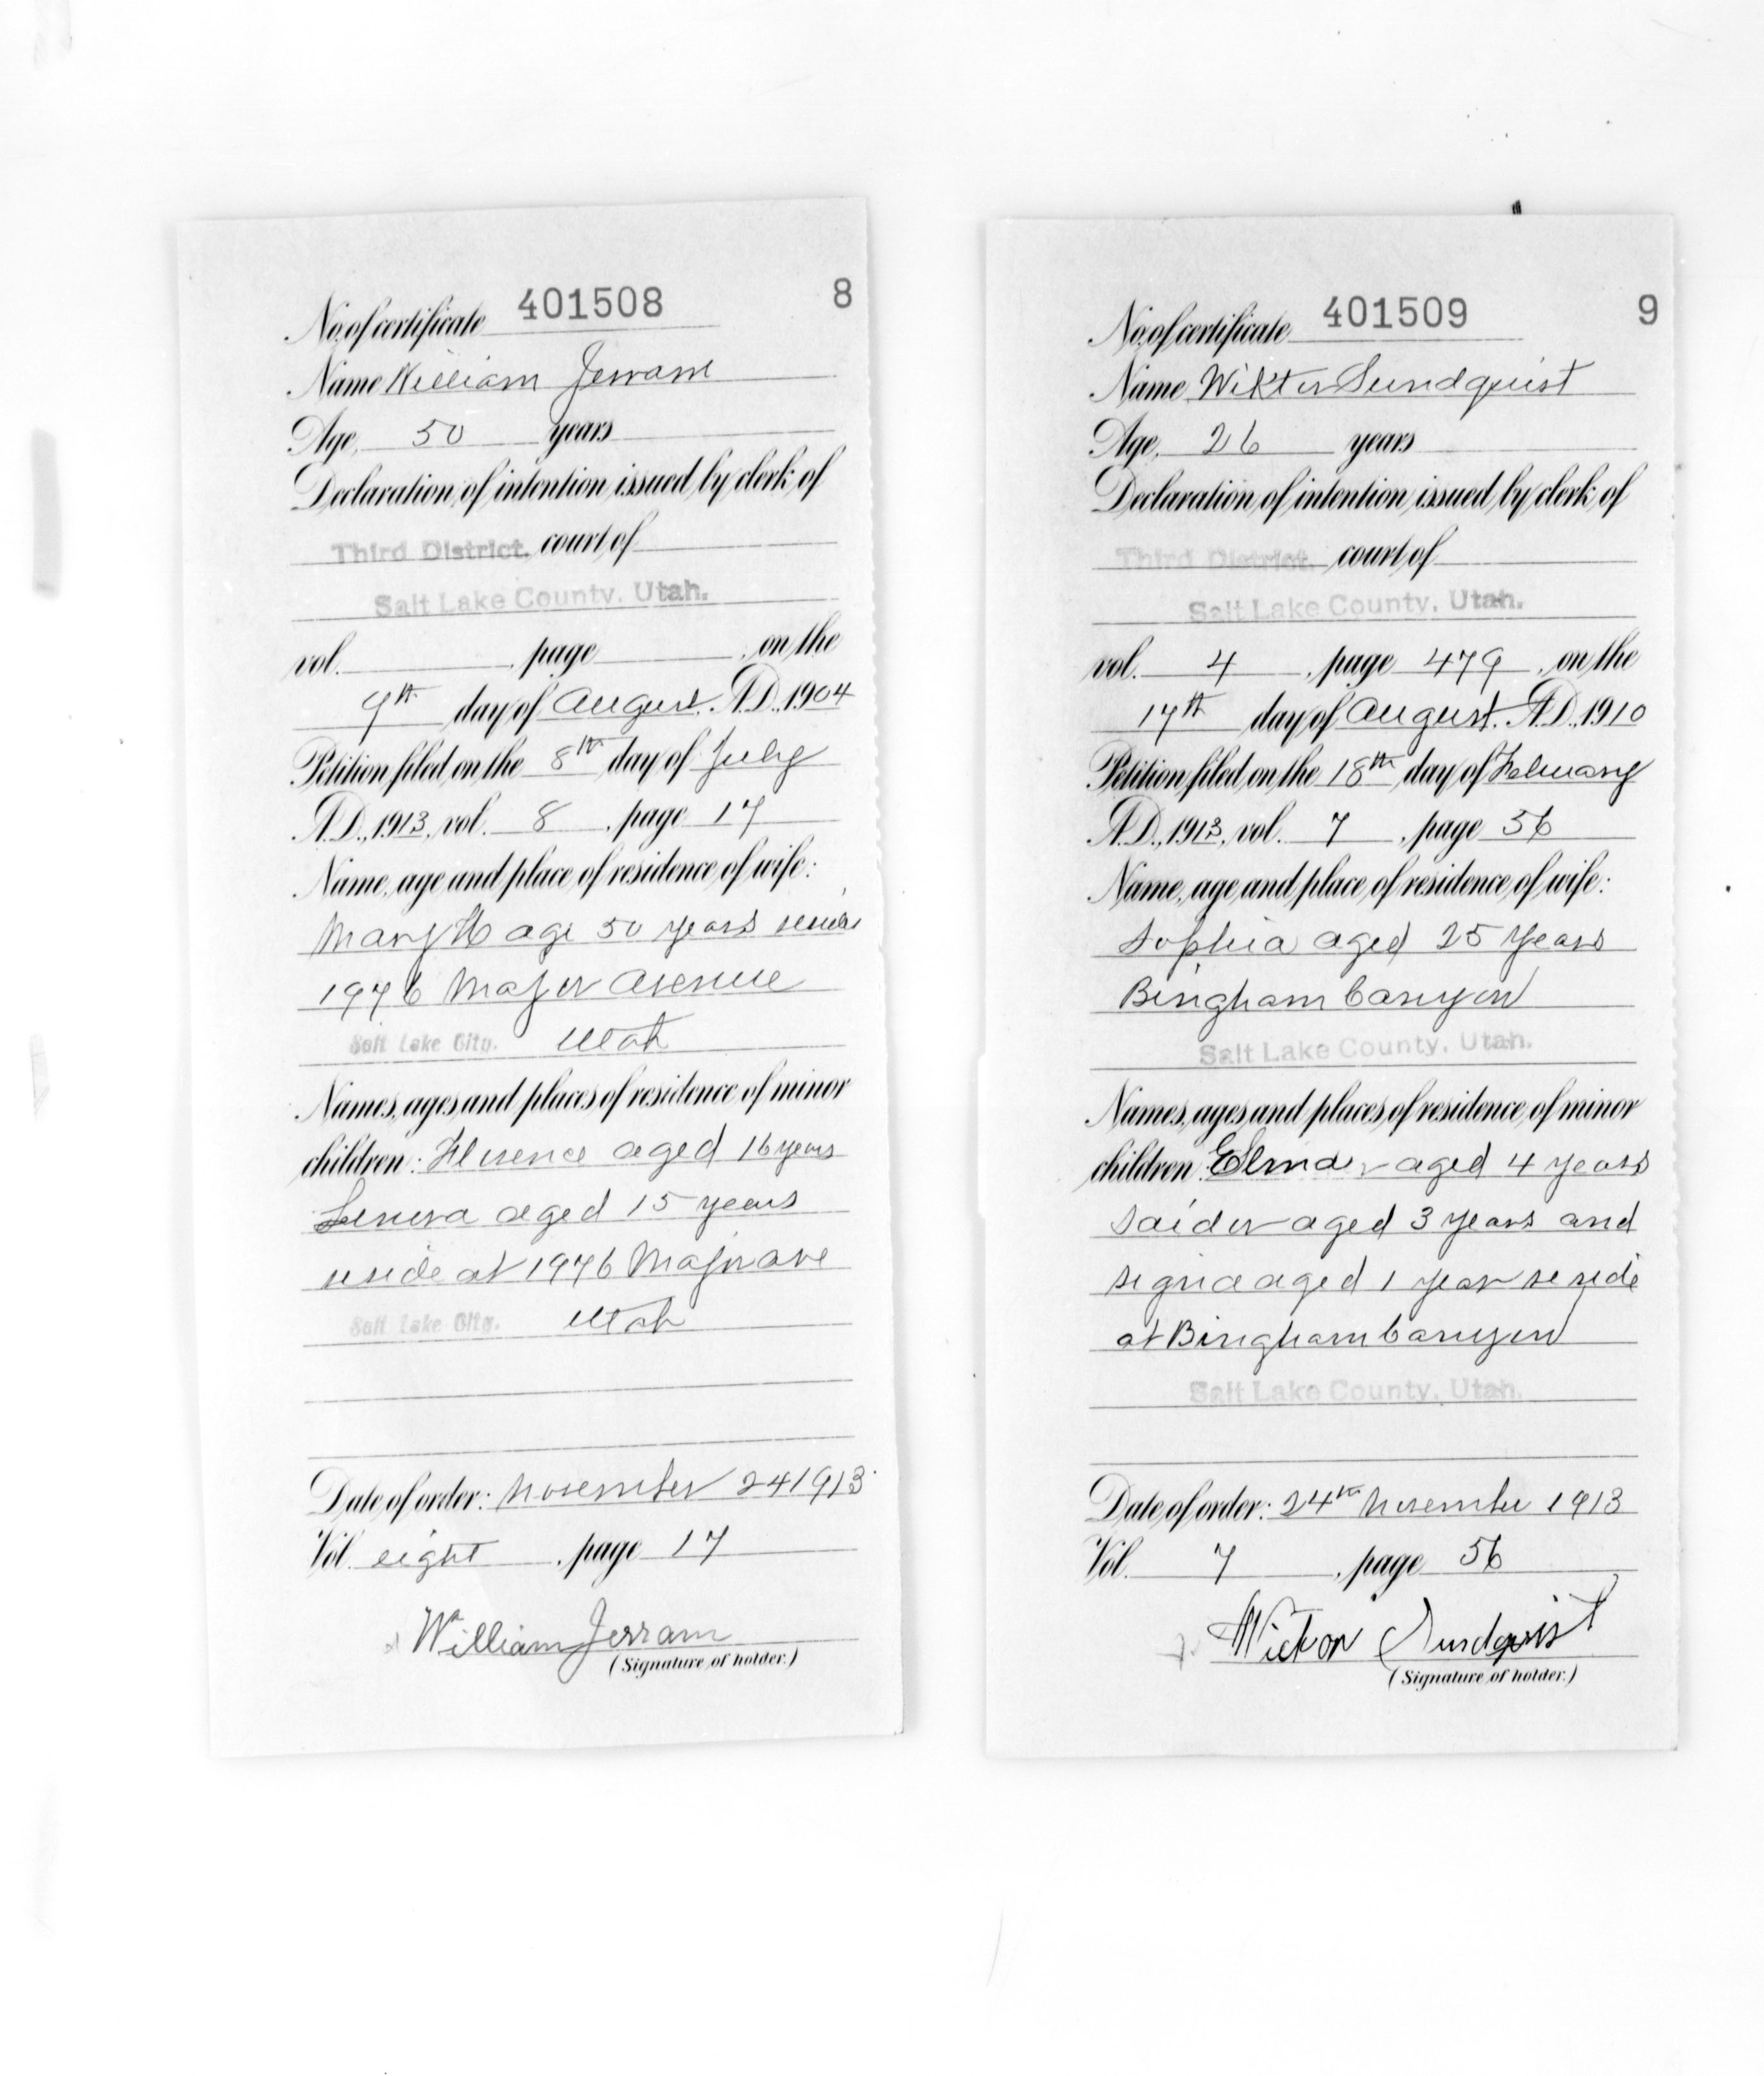 No. of certificate 401508 8
Name William Jerram
Age, 50 years
Declaration of intention issued by clerk of
Third District. court of
Salt Lake County, Utah.
vol. , page , on the
9th day of August, A.D., 1904
Petition filed on the 8th day of July
A.D., 1913, vol. 8 , page 17
Name, age and place of residence of wife:
Mary age 50 years resides
1976 Major Avenue
Salt Lake City. Utah
Names, ages and places of residence of minor
children: Florence aged 16 years
aged 15 years
reside at 1976 Major ave
Salt Lake City. Utah
Date of order: November 24 1913
Vol. eight , page 17
William Jerram
(Signature of holder.)
No. of certificate 401509 9
Name Wiktor Sundquist
Age, 26 years
Declaration of intention issued by clerk of
Third District. court of
Salt Lake County, Utah.
vol. 4 , page 479 , on the
17th day of August, A.D., 1910
Petition filed on the 18th day of February
A.D., 1913, vol. 7 , page 56
Name, age and place of residence of wife:
Sophia aged 25 Years
Bingham Canyon
Salt Lake County, Utah.
Names, ages and places of residence of minor
children: aged 4 years
aged 3 years and
Signa aged 1 year reside
at Bingham Canyon
Salt Lake County, Utah.
Date of order: 24th November 1913
Vol. 7 , page 56
Sundqvist
(Signature of holder.)